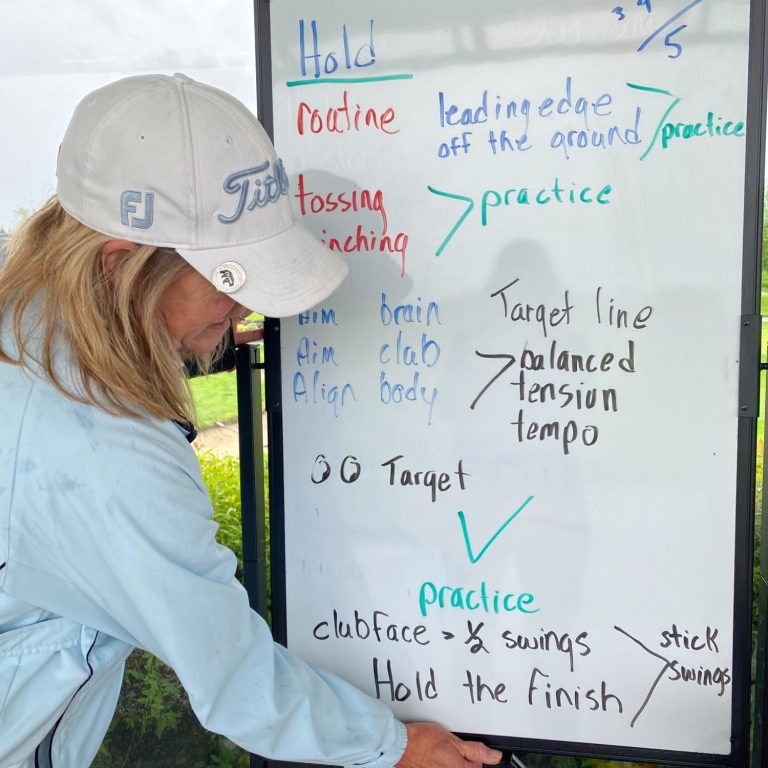 Hold
3 4/5
routine
leading edge
off the ground
practice
tossing
practice
Aim brain
Target line
Aim club
balanced
Align body
tension
tempo
Target
practice
clubface = 1/2 swings
stick
swings
Hold the Finish
FJ